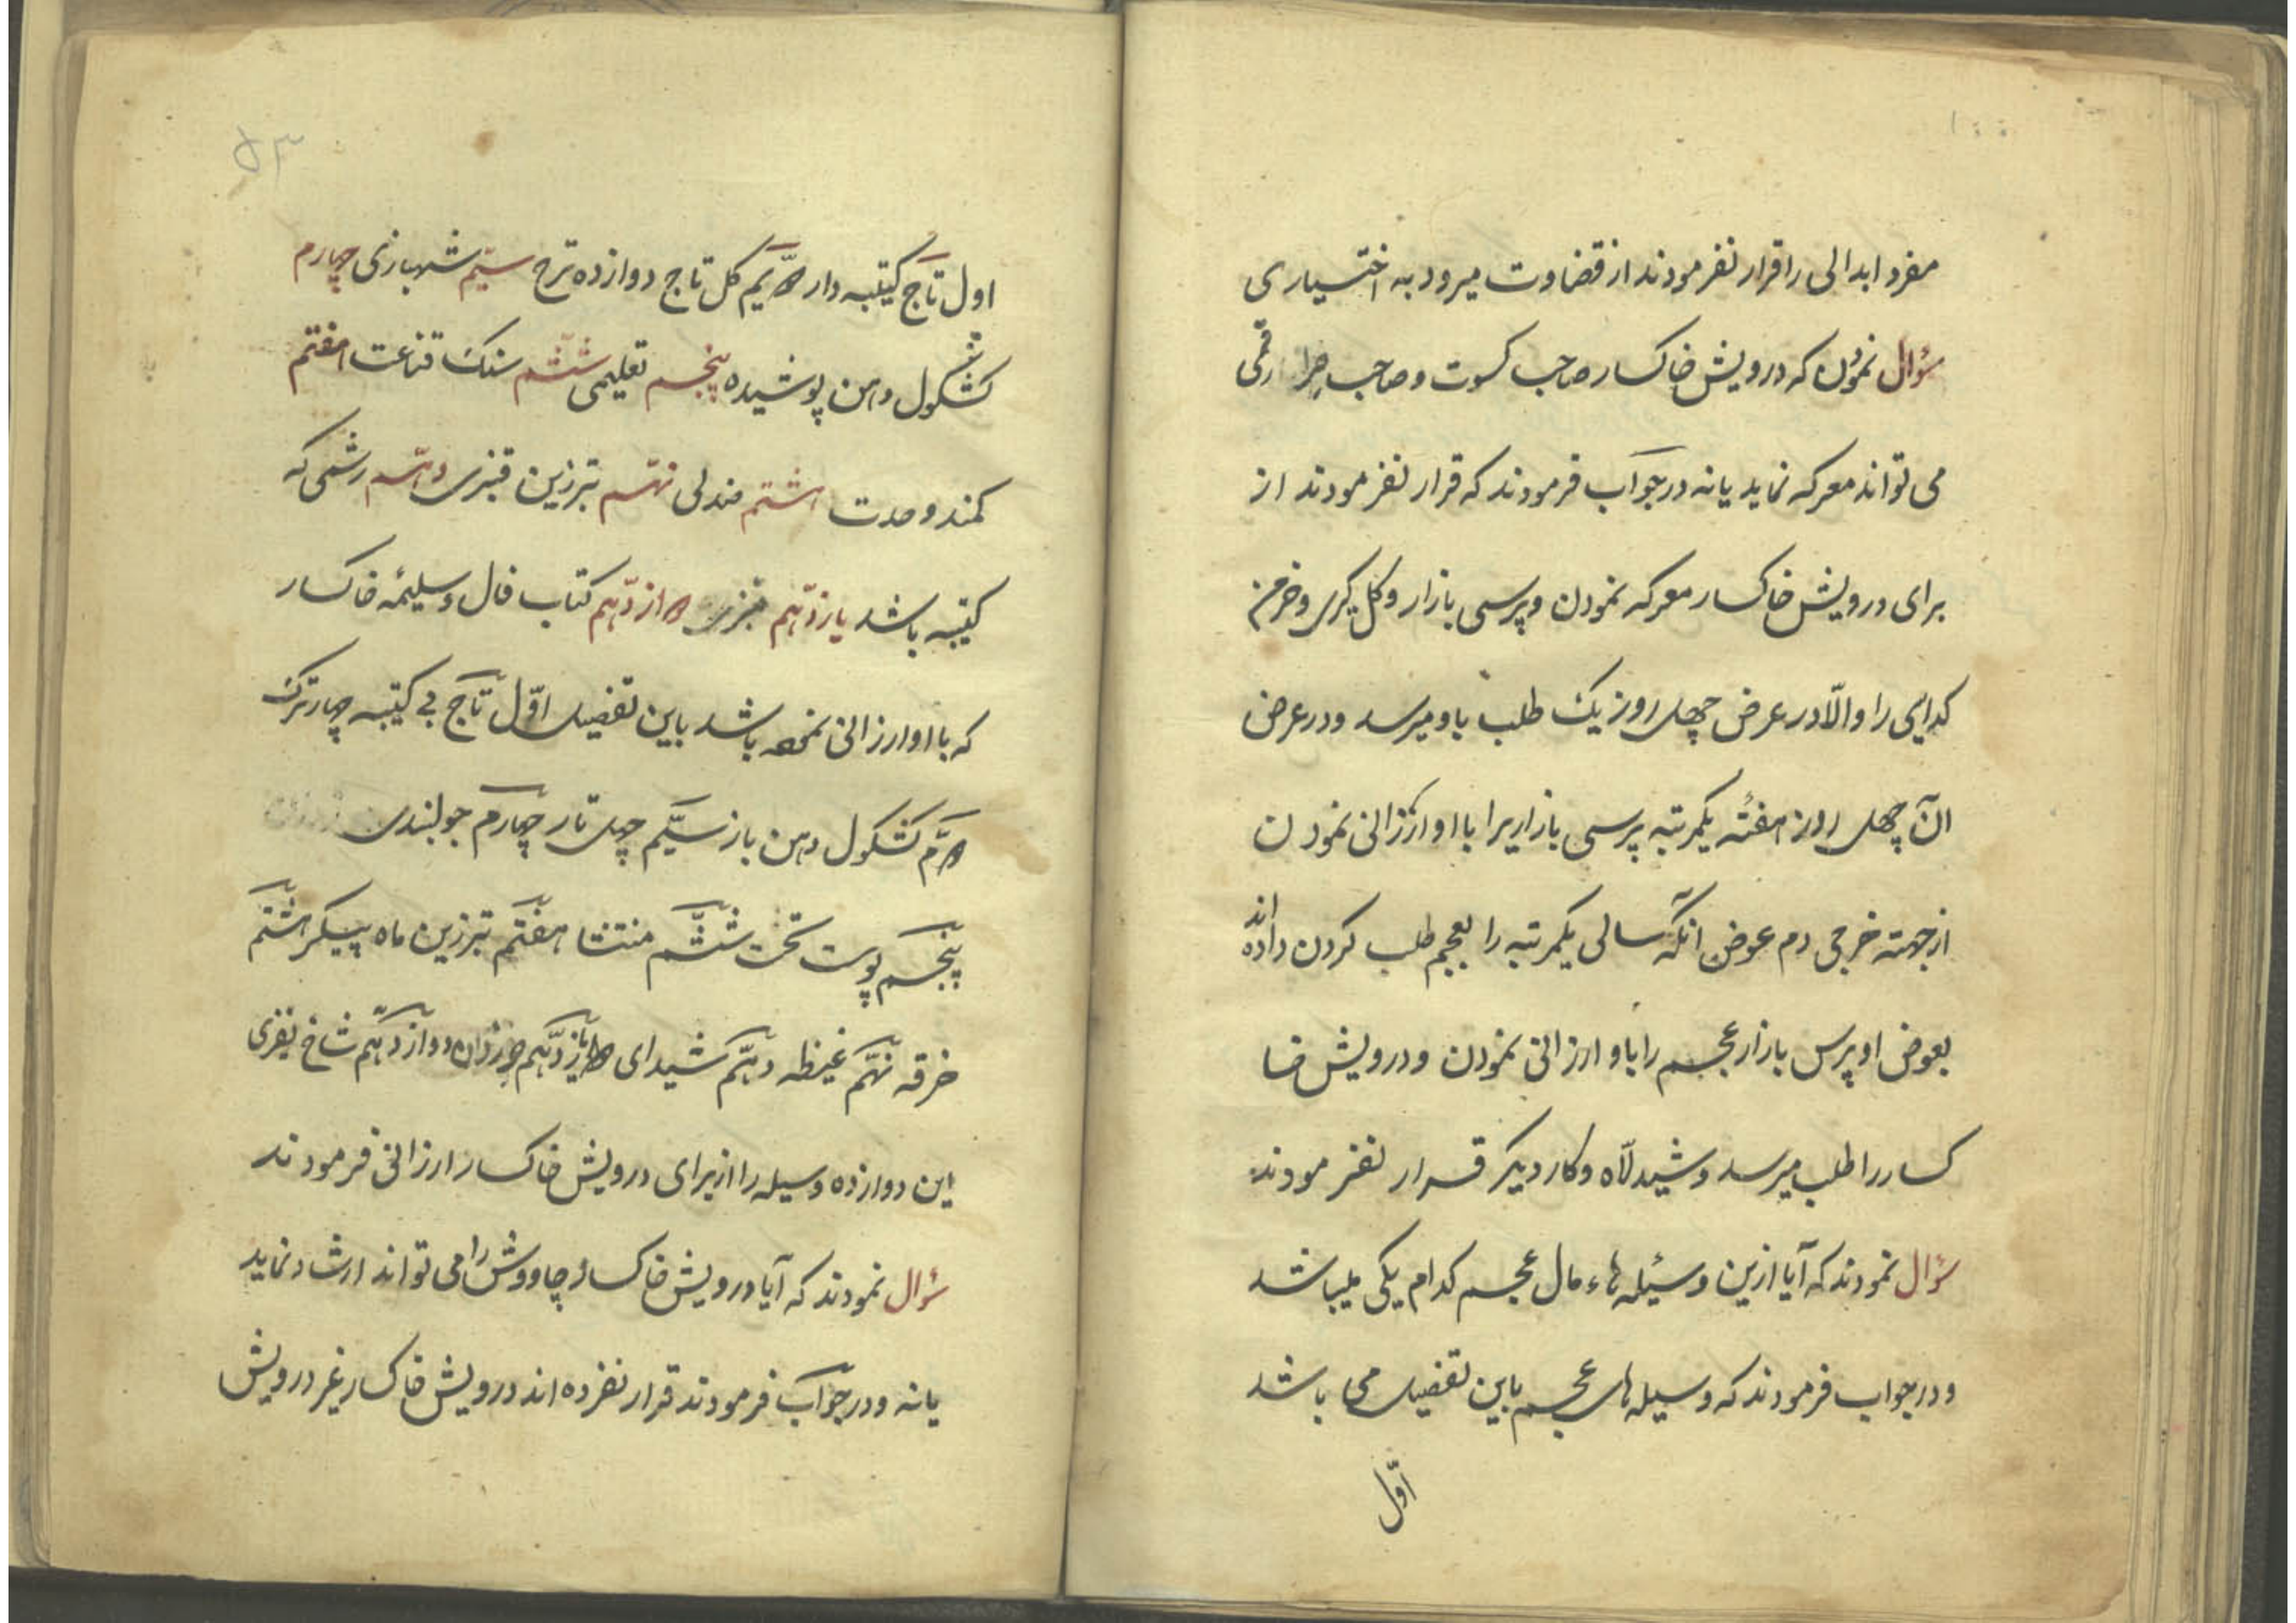 مفرد ابدالی را قرار نفرمودند از قضاوت میرود به اختیاری
سؤال نمودن که درویش خاکسار صاحب کسوت و صاحب چرا رقمی
می تواند معرکه نماید یا نه در جواب فرمودند که قرار نفرمودند از
برای درویش خاکسار معرکه نمودن و پرسی بازار و کل کری و خرمن
کدایی را والّا در عرض چهل روز یک طلب باو میرسد و در عرض
آن چهل روز هفته یکمرتبه پرسی بازاریرا با او ارزانی نمودن
از جهته خرجی دم عوض انکه سالی یکمرتبه را بعجم طلب کردن داده اند
بعوض او پرس بازار عجم را باو ارزانی نمودن و درویش خا
کسار را طلب میرسد و شیدلّاه و کار دیکر قرار نفرمودند
سؤال نمودند که آیا ازین وسئیله هاء مال عجم کدام یکی میباشد
و در جواب فرمودند که وسیله های عجم باین تفصیل می باشد
اول
۵۳
اول تاج کتیبه دار دویم کل تاج دوازده ترک سیّم شهبازی چهارم
کشکول دهن پوشیده پنجم تعلیمی ششم سنک قناعت هفتم
کمند وحدت اشتم مندلی نهم تبرزین قنبری دهم رشمی که
کتیبه باشد یازدهم دوازدهم کتاب فال وسلیمهٔ خاکسار
که با او ارزانی نموده باشد باین تفصیل اوّل تاج بی کتیبه چهار ترک
دویّم کشکول دهن باز سیّم چهل تار چهارم جولبندی
پنجم پوست تخت ششم منتشا هفتم تبرزین ماه پیکر اشتم
خرقه نهم غیظه دهم شیدای یازدهم دوازدهم شاخ نفری
این دوازده وسیله را از برای درویش خاکسار ارزانی فرمودند
سؤال نمودند که آیا درویش خاکسار چاووش را می تواند ارشاد نماید
یا نه و در جواب فرمودند قرار نفرده اند درویش خاکسار غیر درویش